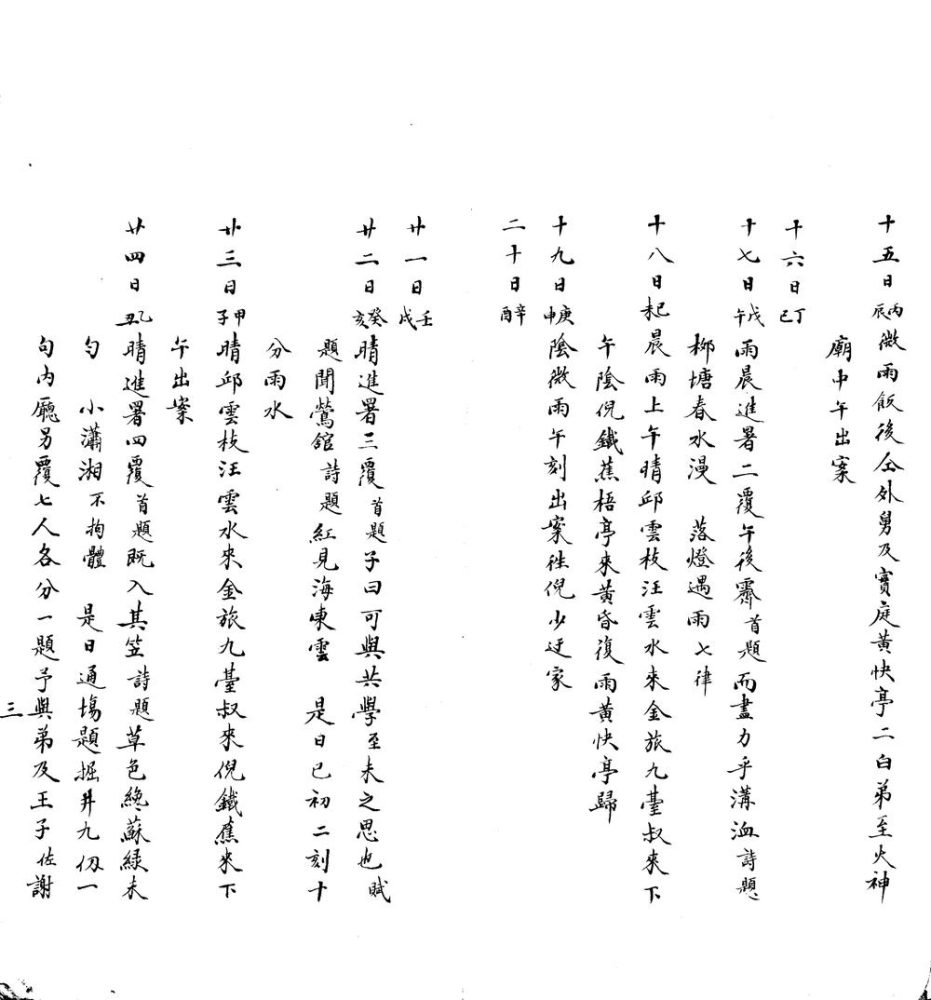 十五日丙辰微雨飯後仝外舅及寳庭黄快亭二白弟至火神
廟中午出案
十六日丁巳
十七日戊午雨晨進署二覆午後霽首題而盡力乎溝洫詩題
柳塘春水漫　落燈遇雨七律
十八日起晨雨上午晴邱雲枝汪雲水來金旅九臺叔來下
午陰倪鐵蕉梧亭來黄昏復雨黄快亭歸
十九日庚申陰微雨午刻出案徃倪少迂家
二十日辛酉
廿一日壬戌
廿二日癸亥晴進署三覆首題子曰可與共學至未之思也賦
題聞鶯館詩題紅見海東雲　是日已初二刻十
分雨水
廿三日甲子晴邱雲枝汪雲水來金旅九臺叔來倪鐵蕉來下
午出案
廿四日乙丑晴進署四覆首題既入其笠詩題草色纔蘇緑未
勻　小瀟湘不拘體　是日通塲題掘井九仭一
句内廳另覆七人各分一題予與弟及王子佐謝
三